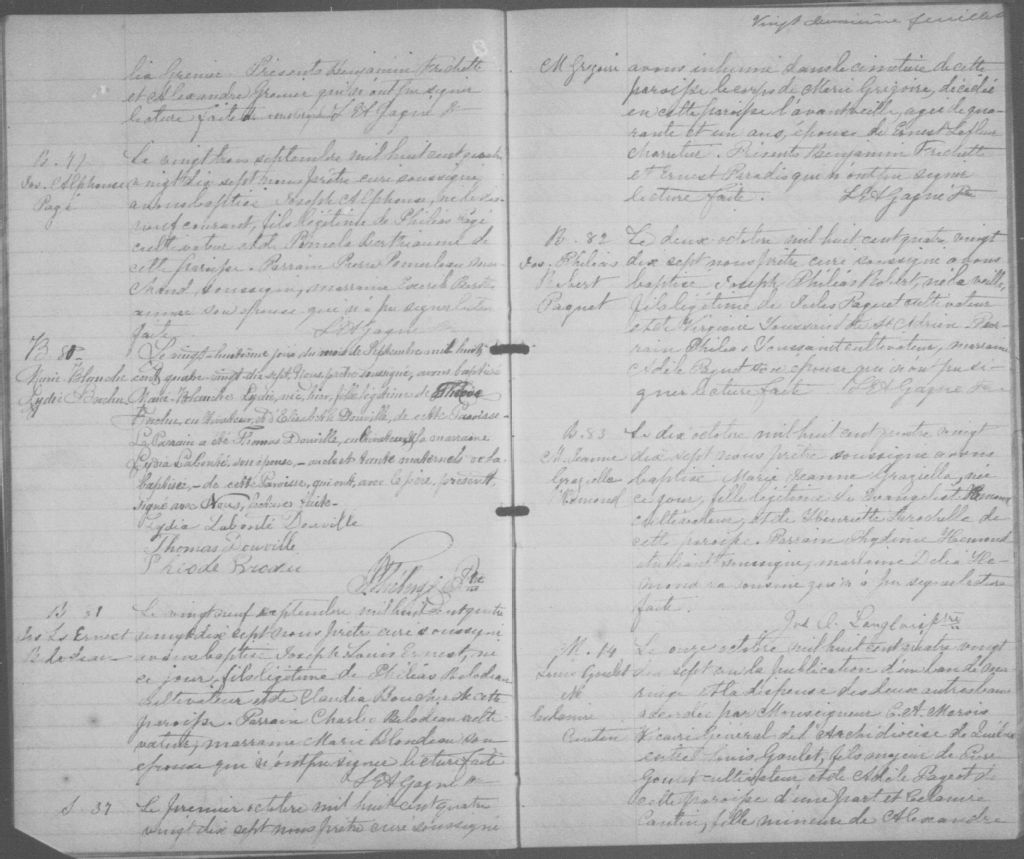 lia Grenier. Présents Benjamin Frichette
et Alexandre Grenier qui n'ont pu signer
lecture faite. L E A Gagné Ptr
B. 79
Jos. Alphonse
Pagé
Le vingt trois septembre mil huit cent quatre
vingt dix sept nous prêtre curé soussigné
avons baptisé Joseph Alphonse, né le
courant, fils légitime de Philias Pagé
cultivateur et de Pamela Berthiaume de
cette paroisse. Parrain Pierre Pomerleau mar
chand, soussigné, marraine
son épouse qui n'a pu signer lecture
faite. L E A Gagné
B 80
Marie-Blanche
Lydie Brochu
Le vingt-huitième jour du mois de Septembre mil huit
cent quatre-vingt-dix sept, Nous, prêtre soussigné, avons baptisé
Marie-Blanche Lydie, née hier, fille légitime de
Brochu, cultivateur, et d'Elisabeth Douville, de cette Paroisse.
Le Parrain a été Thomas Douville, cultivateur, & la marraine
Lydia Labonté, son épouse, – oncle et tante maternels de la
baptisée, – de cette Paroisse, qui ont, avec le père, présent,
signé avec Nous, lecture faite –
Lydia Labonté Douville
Thomas Douville
Ptre
B 81
Jos Ls Ernest
Bilodeau
Le vingt neuf septembre mil huit cent quatre
vingt dix sept nous prêtre curé soussigné
avons baptisé Joseph Louis Ernest, né
ce jour, fils légitime de Philias Bilodeau
cultivateur et de Claudia Boucher de cette
paroisse. Parrain Charles Bilodeau culti
vateur, marraine Marie Blondeau son
épouse qui n'ont pu signer lecture faite
L E A Gagné Ptr
S. 37
Le premier octobre mil huit cent quatre
vingt dix sept nous prêtre curé soussigné
Vingt deuxième feuillet
M Grégoire
avons inhumé dans le cimetière de cette
paroisse le corps de Marie Grégoire, décédée
en cette paroisse l'avant veille, agée de qua
rante et un ans, épouse de Ernest Lafleur
Présents Benjamin Frichette
et Ernest Paradis qui n'ont pu signer
lecture faite. L E A Gagné Ptr
B. 82
Jos. Philias
Robert
Paquet
Le deux octobre mil huit cent quatre vingt
dix sept nous prêtre curé soussigné avons
baptisé Joseph Philias Robert, né la veille,
fils légitime de Jules Paquet cultivateur
et de Virginie Toussaint de St Adrien. Par
rain Philias Toussaint cultivateur, marraine
Adèle Paquet son épouse qui n'ont pu si
gner lecture faite. L E A Gagné Ptr
B. 83
M. Jeanne
Graziella
Hémond
Le dix octobre mil huit cent quatre vingt
dix sept nous prêtre soussigné avons
baptisé Marie Jeanne Graziella, née
ce jour, fille légitime de Evangeliste Hémond
cultivateur, et de Henriette Turcotte de
cette paroisse. Parrain Hémond
étudiant soussigné, marraine Delia Hé
mond sa cousine qui n'a pu signer lecture
faite.
Jos. O. Langlois ptre
M. 14
Louis Goulet
et
Exlanire
Cantin
Le onze octobre mil huit cent quatre vingt
dix sept vu la publication d'un ban de ma
riage et la dispense des deux autres bans
accordée par Monseigneur C. A. Marois
Vicaire Général de l'Archidiocèse de Québec
entre Louis Goulet, fils majeur de
Goulet cultivateur et de Adèle Pageot de
cette paroisse d'une part et Exlanire
Cantin, fille mineure de Alexandre